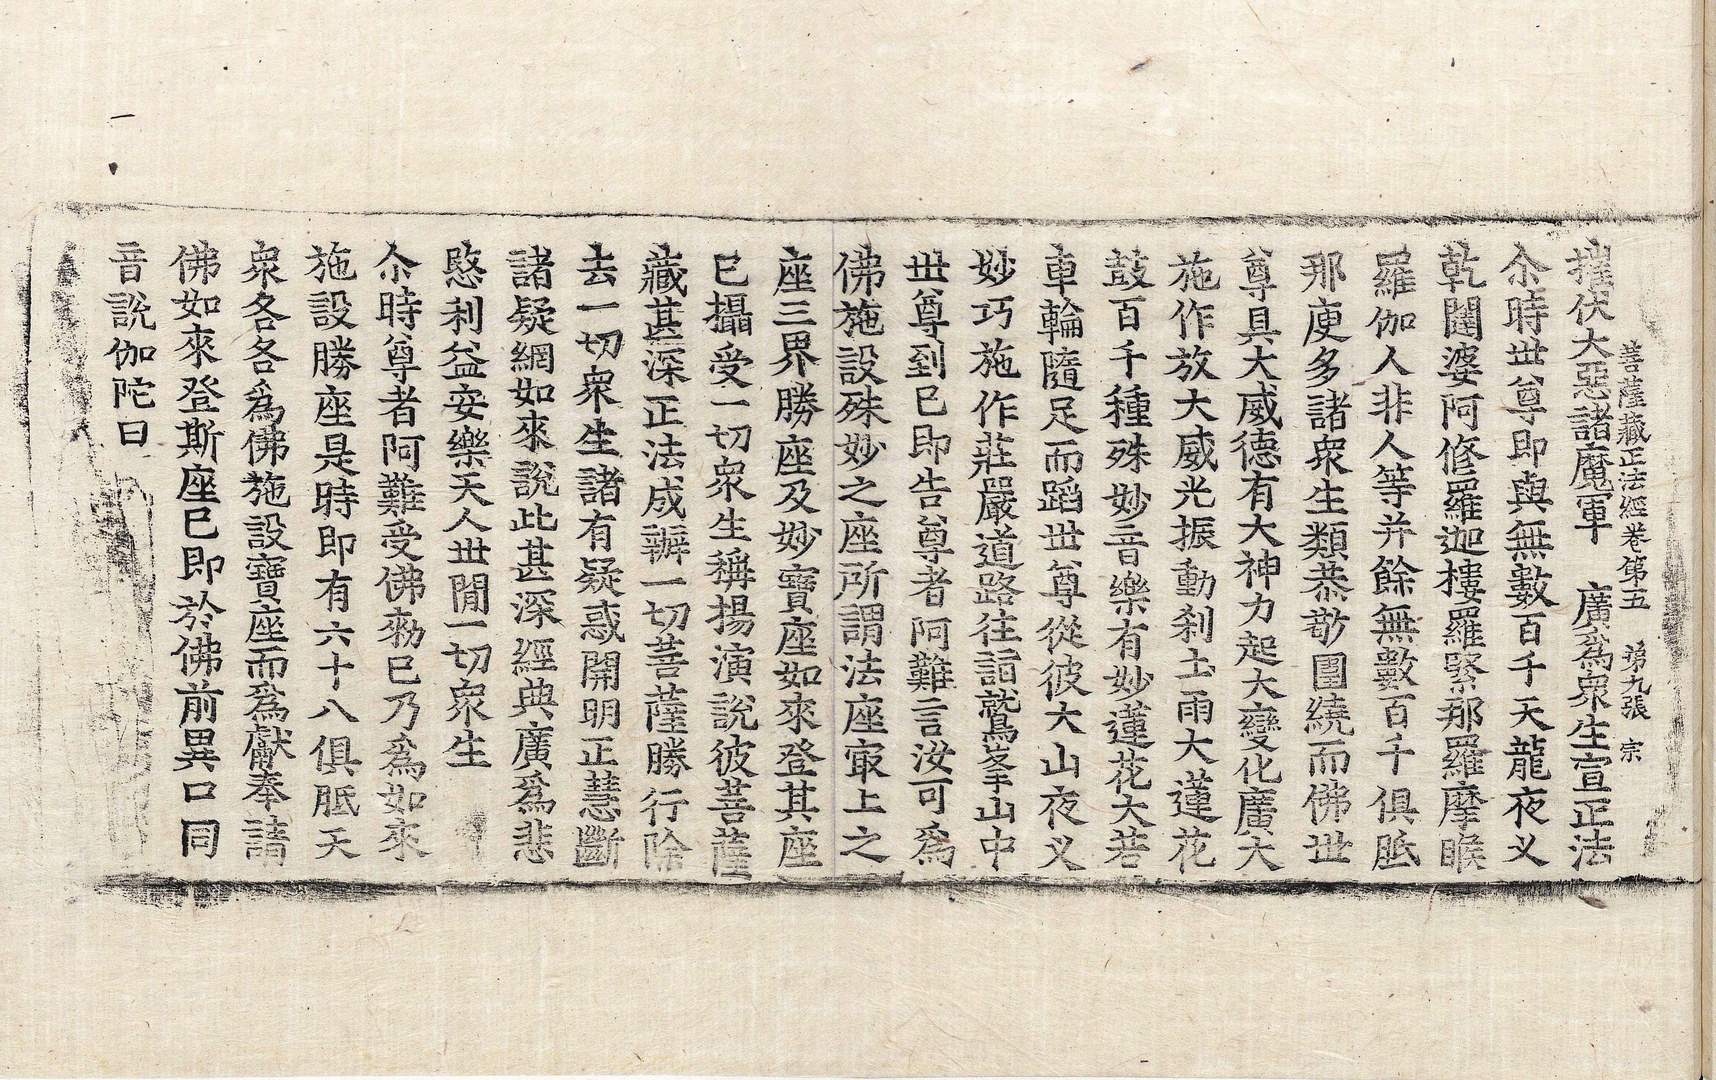 菩薩藏正法經卷第五　第九張　宗
摧伏大惡諸魔軍　廣爲衆生宣正法
尒時世尊即與無數百千天龍夜叉
乾闥婆阿修羅迦樓羅緊那羅摩睺
羅伽人非人等并餘無數百千俱胝
那庾多諸衆生類恭敬圍繞而佛世
尊具大威德有大神力起大變化廣大
施作放大威光振動刹土雨大蓮花
鼓百千種殊妙音樂有妙蓮花大若
車輪隨足而蹈世尊從彼大山夜叉
妙巧施作莊嚴道路往詣鷲峯山中
世尊到已即告尊者阿難言汝可爲
佛施設殊妙之座所謂法座㝡上之
座三界勝座及妙寶座如來登其座
已攝受一切衆生稱揚演說彼菩薩
藏甚深正法成辦一切菩薩勝行除
去一切衆生諸有疑惑開明正慧斷
諸疑網如來說此甚深經典廣爲悲
愍利益安樂天人世間一切衆生
尒時尊者阿難受佛勑已乃爲如來
施設勝座是時即有六十八俱胝天
衆各各爲佛施設寶座而爲獻奉請
佛如來登斯座已即於佛前異口同
音說伽陀曰